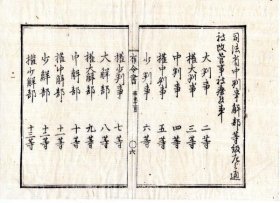 司法省中判事解部等級左ノ通
被改候事
大判事 二等
権大判事 三等
中判事 四等
権中判事 五等
少判事 六等
権少判事 七等
大解部 八等
権大解部 九等
中解部 十等
権中解部 十一等
少解部 十二等
権少解部 十三等